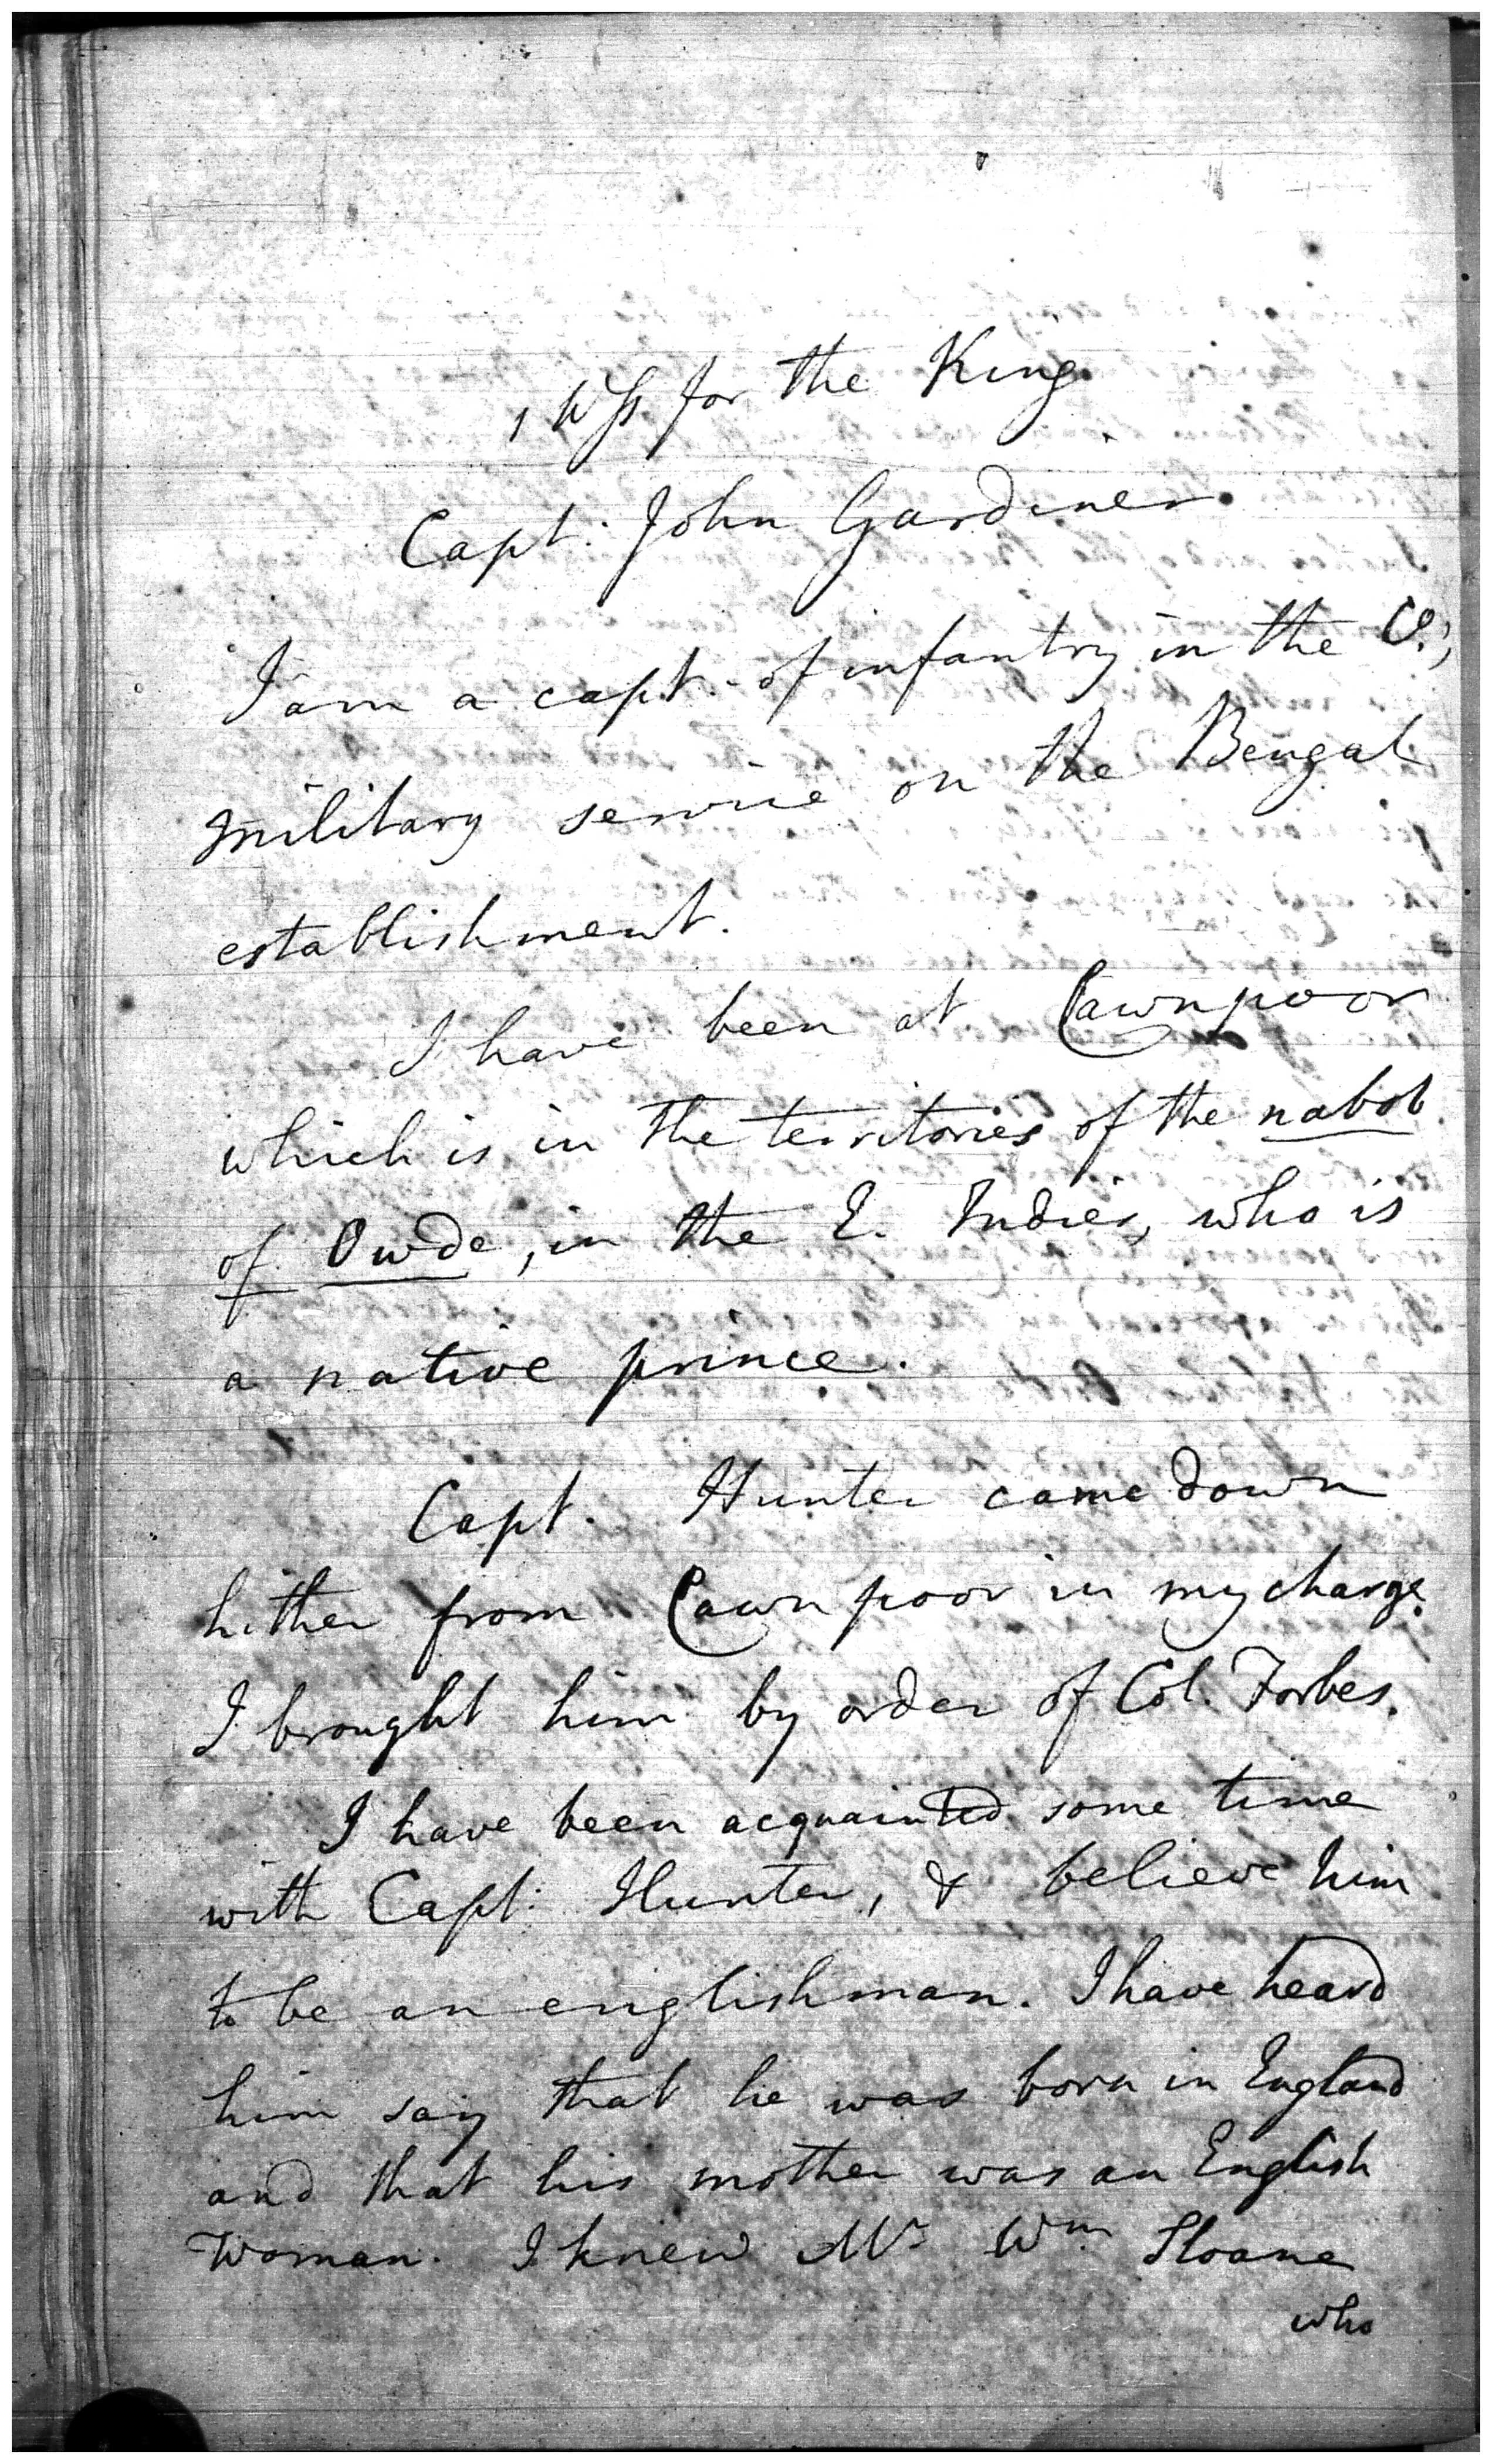 1 Wss for the King.
Capt: John Gardiner.
I am a capt. of infantry in the Co.'s
military service on the Bengal
establishment.
I have been at Cawnpoor
which is in the territories of the nabob
of Owde, in the E. Indies, who is
a native prince.
Capt. Hunter came down
hither from Cawnpoor in my charge.
I brought him by order of Col. Forbes.
I have been acquainted some time
with Capt: Hunter, & believe him
to be an englishman. I have heard
him say that he was born in England
and that his mother was an English
Woman. I knew Mr Wm Sloane
who